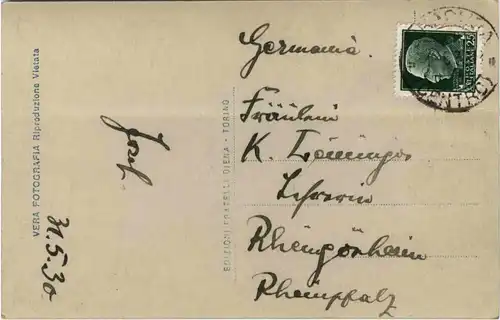 VERA FOTOGRAFIA Riproduzione Vietata
Josef
31.5.30
EDIZIONI FRATELLI DIENA - TORINO
Germania.
Fräulein
K.
Rheingönheim
Rheinpfalz